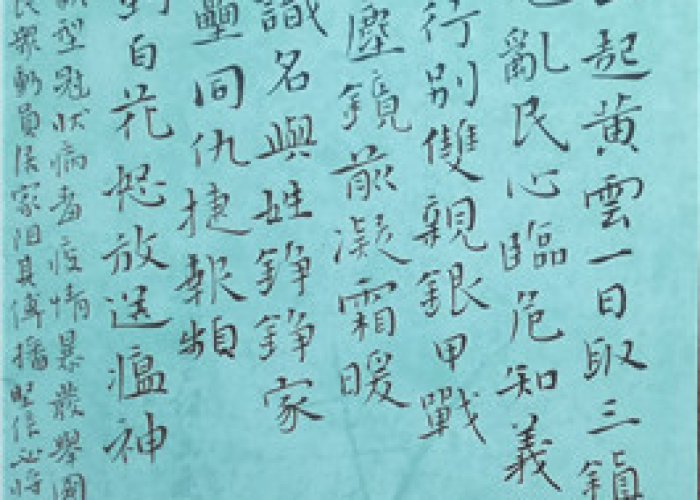 起黃雲一日取三鎮
亂民心臨危知義
行別雙親銀甲戰
塵鏡前凝霜暖
識名與姓錚錚家
壘同仇捷報頻
到白花怒放送瘟神
新型冠狀病毒疫情暴發舉國
民眾動員居家阻其傳播堅信必將